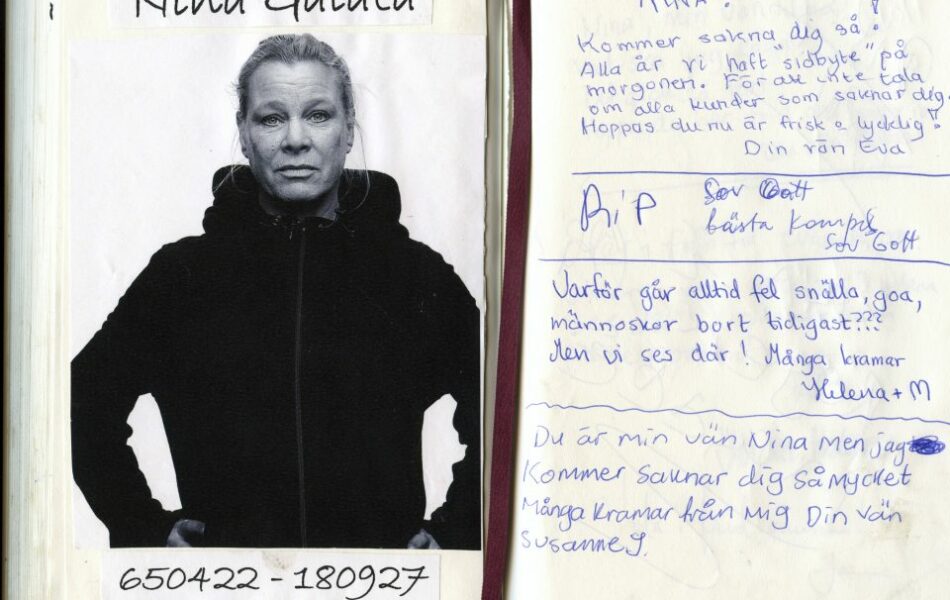 Nina
650422 - 180927
NINA!
Kommer sakna dig så!
Alla år vi haft "sidbyte" på
morgonen. För att inte tala
om alla kunder som saknar dig.
Hoppas du nu är frisk o lycklig!
Din vän Eva
RiP
Sov Gott
bästa kompis
Sov Gott
Varför går alltid fel snälla, goa,
männoskor bort tidigast???
Men vi ses där! Många kramar
Helena + M
Du är min vän Nina men jag
Kommer saknar dig så mycket
Många kramar från mig Din vän
Susanne